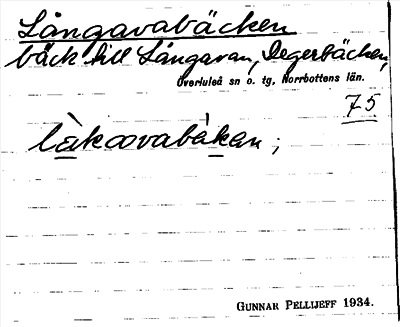 Långavabäcken
bäck till Långavan, Degerbäcken,
Överluleå sn o. tg, Norrbottens län.
75
làkavabákan;
GUNNAR PELLIJEFF 1934.